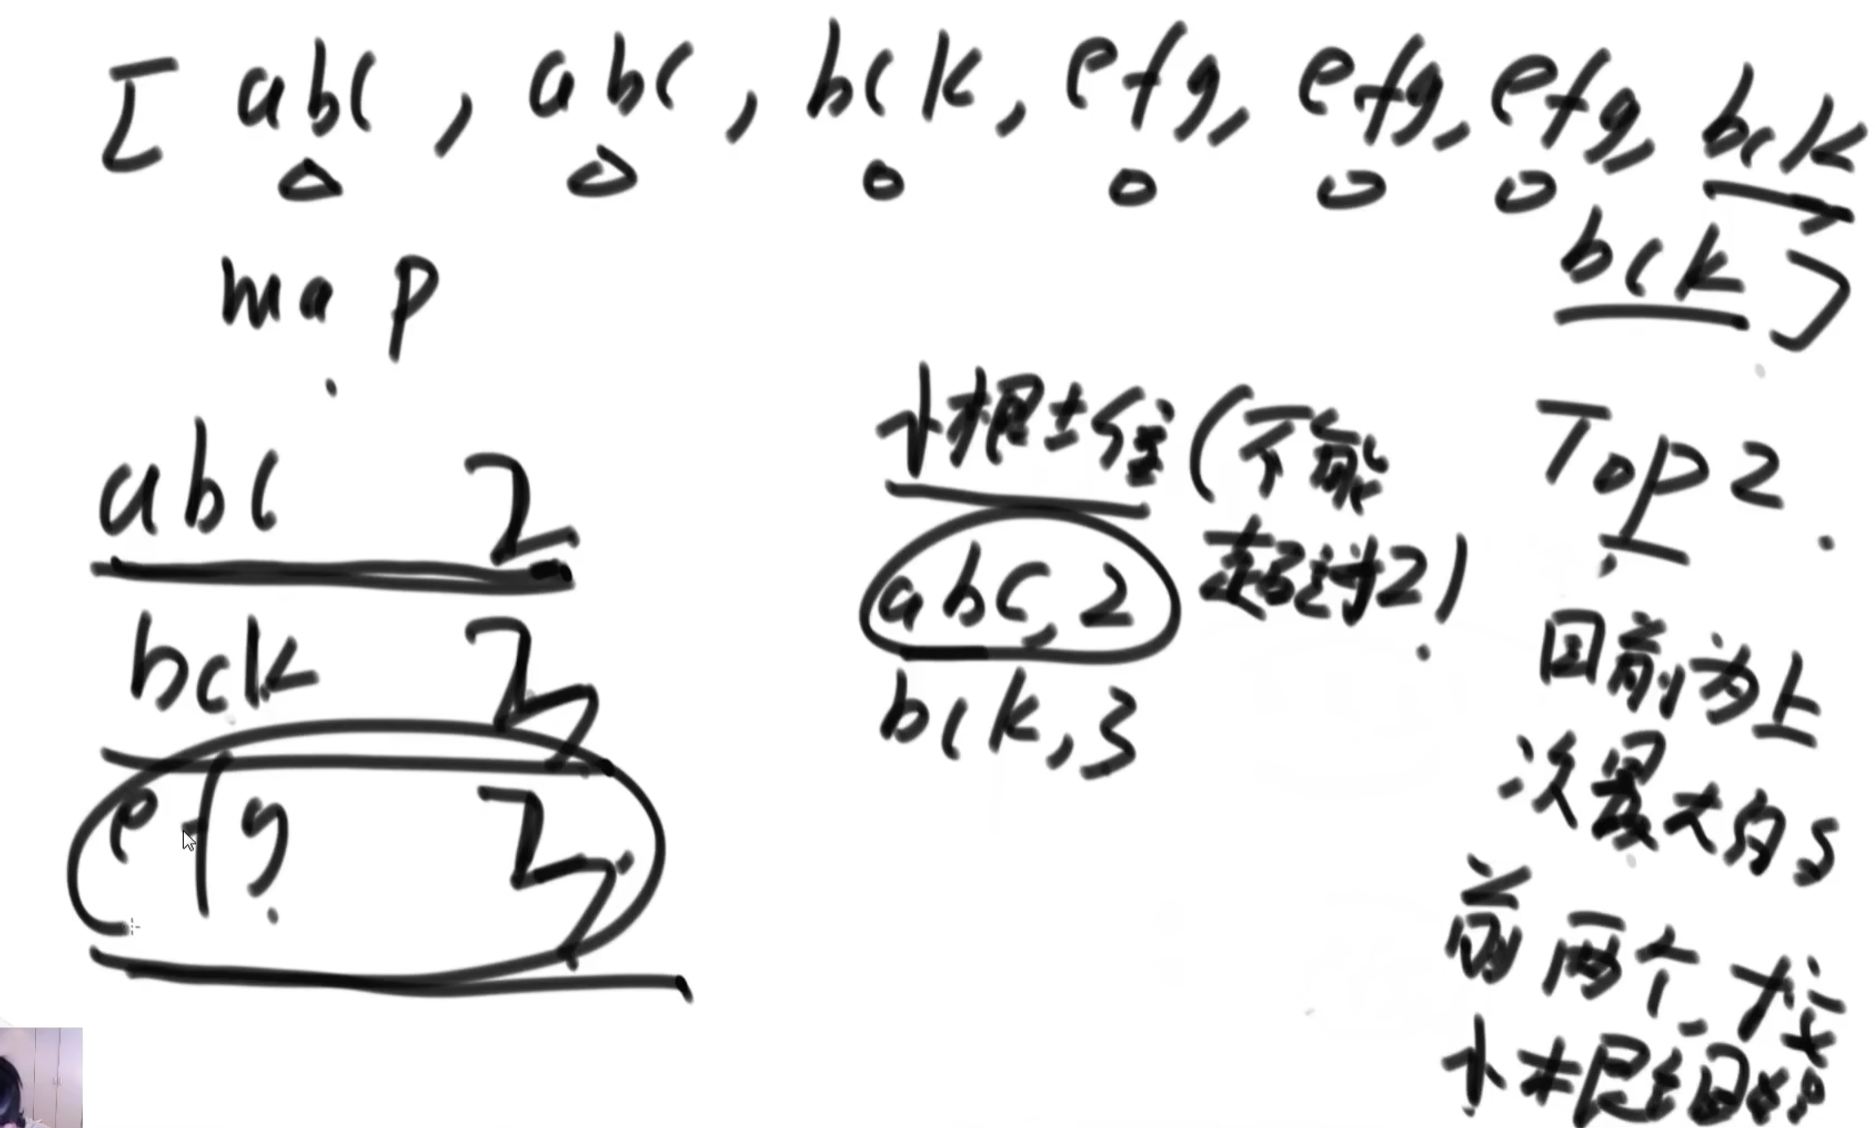 [ abc , abc , bck, efg, efg, efg, bck
bck ]
map
abc 2
bck 3
efg 3
小根堆 (不能
超过2)
abc, 2
bck, 3
Top 2
目前为止
次最大的
前两个
小根